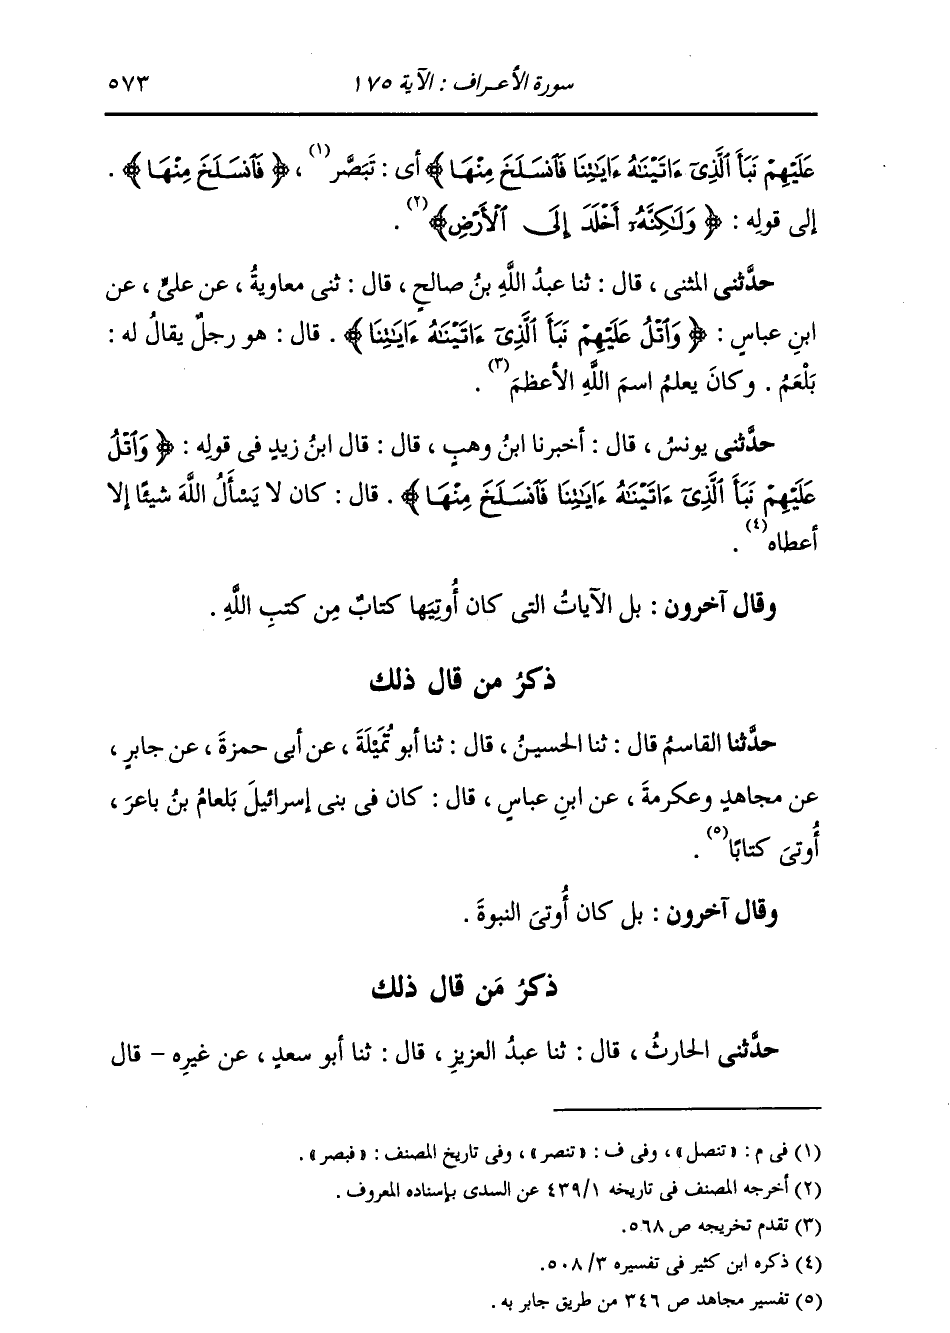 سورة الأعراف : الآية ١٧٥ ٥٧٣
عَلَيْهِمْ نَبَأَ ٱلَّذِىٓ ءَاتَيْنَٰهُ ءَايَٰتِنَا فَٱنسَلَخَ مِنْهَا﴾ أى : تَبَصَّر(١) ، ﴿ فَٱنسَلَخَ مِنْهَا﴾ .
إلى قولِه : ﴿ وَلَٰكِنَّهُۥٓ أَخْلَدَ إِلَى ٱلْأَرْضِ﴾(٢) .
حدَّثنى المثنى ، قال : ثنا عبدُ اللَّهِ بنُ صالحٍ ، قال : ثنى معاويةُ ، عن علىٍّ ، عن
ابنِ عباسٍ : ﴿ وَٱتْلُ عَلَيْهِمْ نَبَأَ ٱلَّذِىٓ ءَاتَيْنَٰهُ ءَايَٰتِنَا﴾ . قال : هو رجلٌ يقالُ له :
بَلْعَمُ . وكانَ يعلمُ اسمَ اللَّهِ الأعظمَ(٣) .
حدَّثنى يونسُ ، قال : أخبرنا ابنُ وهبٍ ، قال : قال ابنُ زيدٍ فى قولِه : ﴿ وَٱتْلُ
عَلَيْهِمْ نَبَأَ ٱلَّذِىٓ ءَاتَيْنَٰهُ ءَايَٰتِنَا فَٱنسَلَخَ مِنْهَا﴾ . قال : كان لا يَسْأَلُ اللَّهَ شيئًا إلا
أعطاه(٤) .
وقال آخرون : بل الآياتُ التى كان أُوتِيَها كتابٌ مِن كتبِ اللَّهِ .
ذكرُ من قال ذلك
حدَّثنا القاسمُ قال : ثنا الحسينُ ، قال : ثنا أبو تُمَيْلَةَ ، عن أبى حمزةَ ، عن جابرٍ ،
عن مجاهدٍ وعكرمةَ ، عن ابنِ عباسٍ ، قال : كان فى بنى إسرائيلَ بَلعامُ بنُ باعرَ ،
أُوتىَ كتابًا(٥) .
وقال آخرون : بل كان أُوتىَ النبوةَ .
ذكرُ مَن قال ذلك
حدَّثنى الحارثُ ، قال : ثنا عبدُ العزيزِ ، قال : ثنا أبو سعدٍ ، عن غيرِه – قال
(١) فى م : « تنصل » ، وفى ف : « تنصر » ، وفى تاريخ المصنف : « فبصر » .
(٢) أخرجه المصنف فى تاريخه ٤٣٩/١ عن السدى بإسناده المعروف .
(٣) تقدم تخريجه ص ٥٦٨.
(٤) ذكره ابن كثير فى تفسيره ٥٠٨/٣.
(٥) تفسير مجاهد ص ٣٤٦ من طريق جابر به .